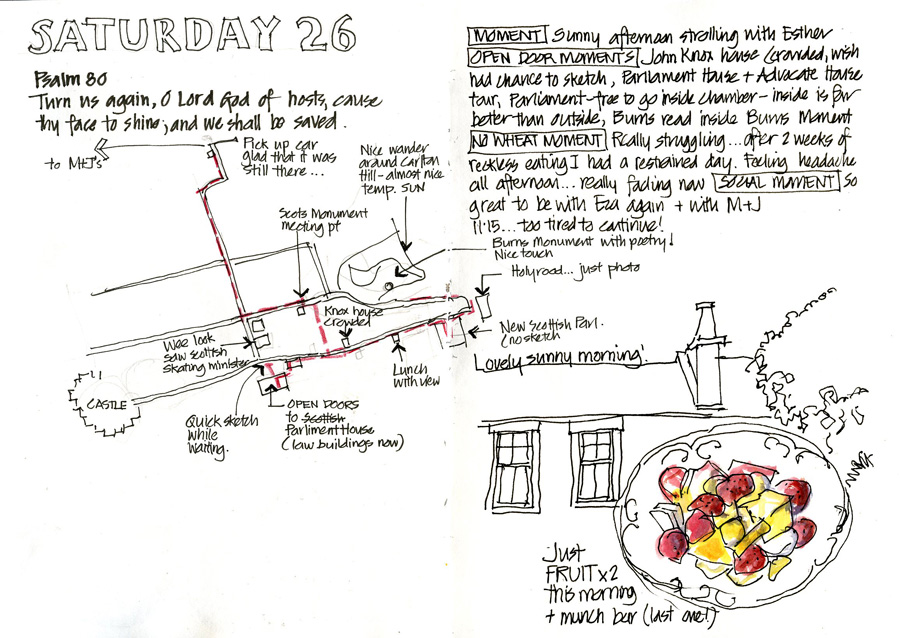 SATURDAY 26
Psalm 80
Turn us again, O Lord God of hosts, cause
thy face to shine; and we shall be saved.
to M+J's
Pick up car
glad that it was
still there...
Nice wander
around Carlton
Hill - almost nice
temp. SUN
Scots Monument
meeting pt
Burns Monument with poetry!
Nice touch
Holyrood... just photo
Knox house
crowded
New Scottish Parl.
(no sketch
Wee look
saw scottish
skating minister
Lunch
with view
CASTLE
Quick sketch
while
waiting.
OPEN DOORS
to Scottish
Parliment House
(law buildings now)
MOMENT Sunny afternoon strolling with Esther
OPEN DOOR MOMENTS John Knox house (crowded, wish
had chance to sketch, Parliament House + Advocate House
tour, Parliament - free to go inside chamber - inside is far
better than outside, Burns read inside Burns Monument
NO WHEAT MOMENT Really struggling... after 2 weeks of
reckless eating I had a restrained day. Feeling headache
all afternoon... really fading now SOCIAL MOMENT So
great to be with Eza again + with M+J
11.15... too tired to continue!
Lovely sunny morning!
Just
FRUIT x 2
this morning
+ munch bar (last one!)